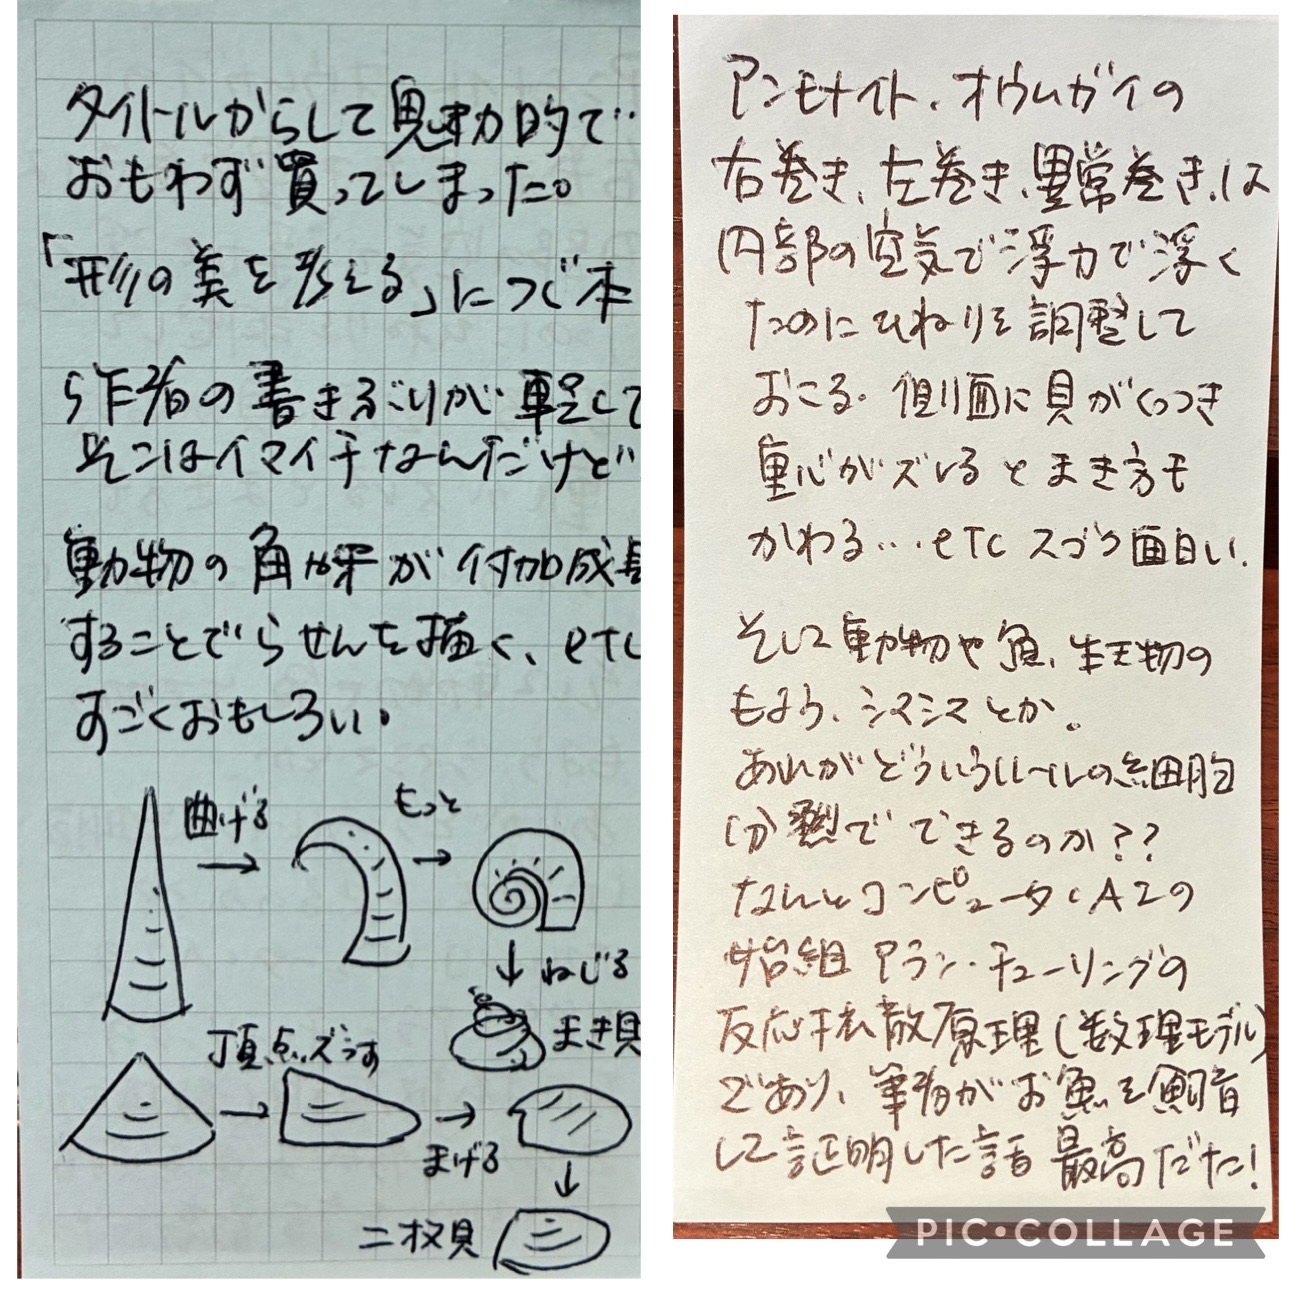 タイトルからして魅力的で‥
おもわず買ってしまった。
「形の美を考える」につぐ本
作者の書きぶりが軽くて
そこはイマイチなんだけど
動物の角や牙が付加成長
することでらせんを描く、etc
すごくおもしろい。
曲げる
もっと
ねじる
まき貝
頂点ズラす
まげる
二枚貝
アンモナイト、オウムガイの
右巻き、左巻き、異常巻き、は
内部の空気で浮力で浮く
ためにひねりを調整して
おこる。側面に貝がくっつき
重心がズレるとまき方も
かわる‥.etc スゴク面白い.
そして動物や魚、生き物の
もよう、シマシマとか。
あれがどういうルールの細胞
分裂でできるのか??
なんとコンピュータ・AIの
始祖アラン・チューリングの
反応拡散原理(数理モデル)
であり、筆者がお魚を飼育
して証明した話 最高だた!
PIC•COLLAGE